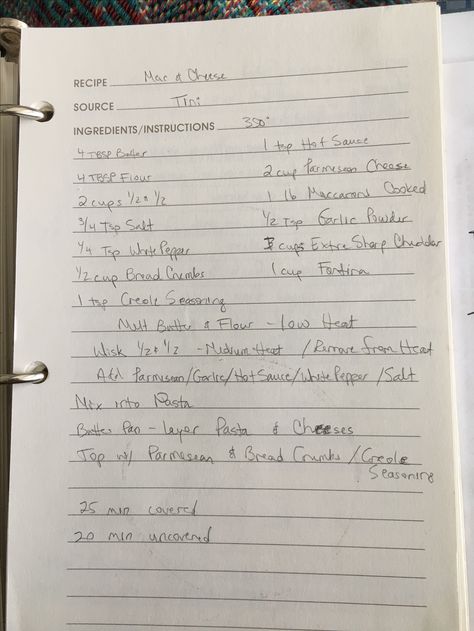 RECIPE Mac & Cheese
SOURCE Tini
INGREDIENTS/INSTRUCTIONS 350°
4 TBSP Butter
4 TBSP Flour
2 cups 1/2 & 1/2
3/4 Tsp Salt
1/4 Tsp White Pepper
1/2 cup Bread Crumbs
1 tsp Creole Seasoning
1 tsp Hot Sauce
2 cup Parmesean Cheese
1 lb Maccaroni Cooked
1/2 Tsp Garlic Powder
cups Extra Sharp Cheddar
1 cup Fontina
Melt Butter & Flour - Low Heat
Wisk 1/2 & 1/2 - Medium Heat / Remove from Heat
Add Parmesean/Garlic/Hot Sauce/White Pepper/Salt
Mix into Pasta
Butter Pan - layer Pasta & Cheeses
Top w/ Parmesean & Bread Crumbs / Creole
Seasoning
25 min covered
20 min uncovered